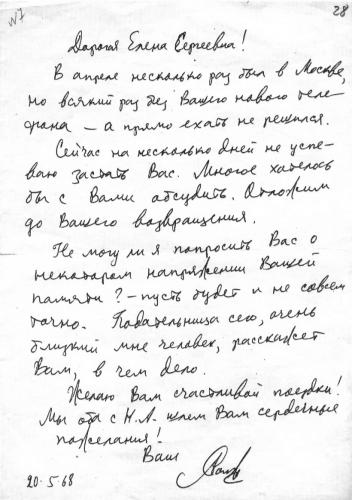 N7
28
Дорогая Елена Сергеевна!
В апреле несколько раз был в Москве,
но всякий раз без Вашего нового теле-
фона — а прямо ехать не решился.
Сейчас на несколько дней не успе-
ваю застать Вас. Многое хотелось
бы с Вами обсудить. Отложим
до Вашего возвращения.
Не могу ли я попросить Вас о
некотором напряжении Вашей
памяти? — пусть будет и не совсем
точно. Подательница сего, очень
близкий мне человек, расскажет
Вам, в чем дело.
Желаю Вам счастливой поездки!
Мы оба с Н.А. шлем Вам сердечные
пожелания!
Ваш
20.5.68